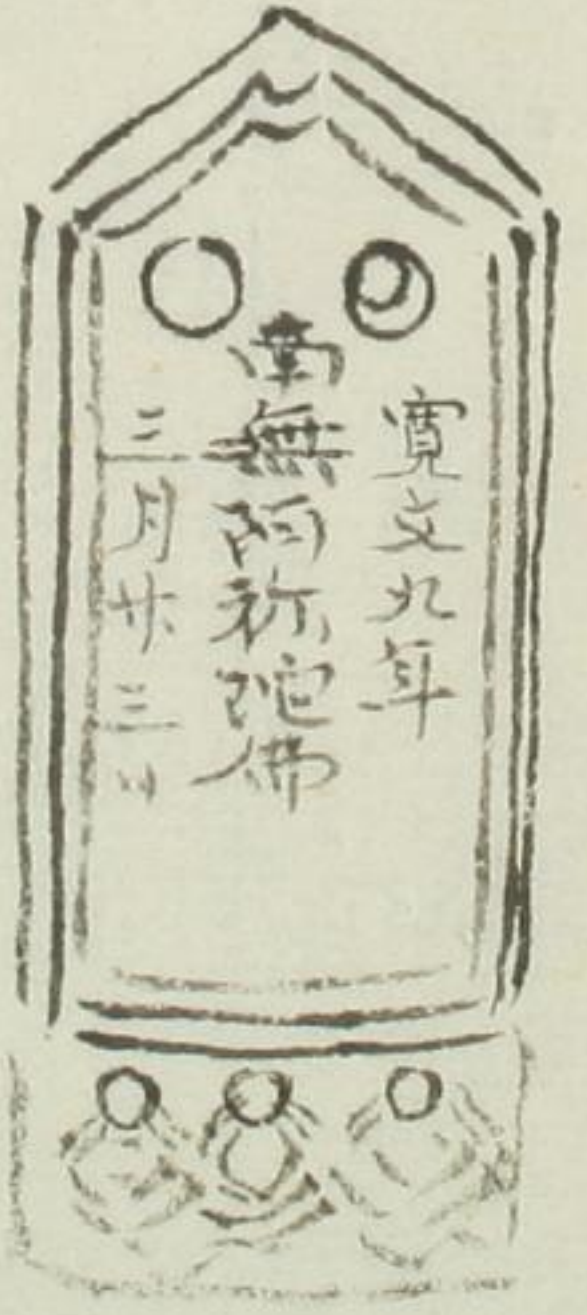 寛文九年
南無阿弥陀佛
三月廿三日